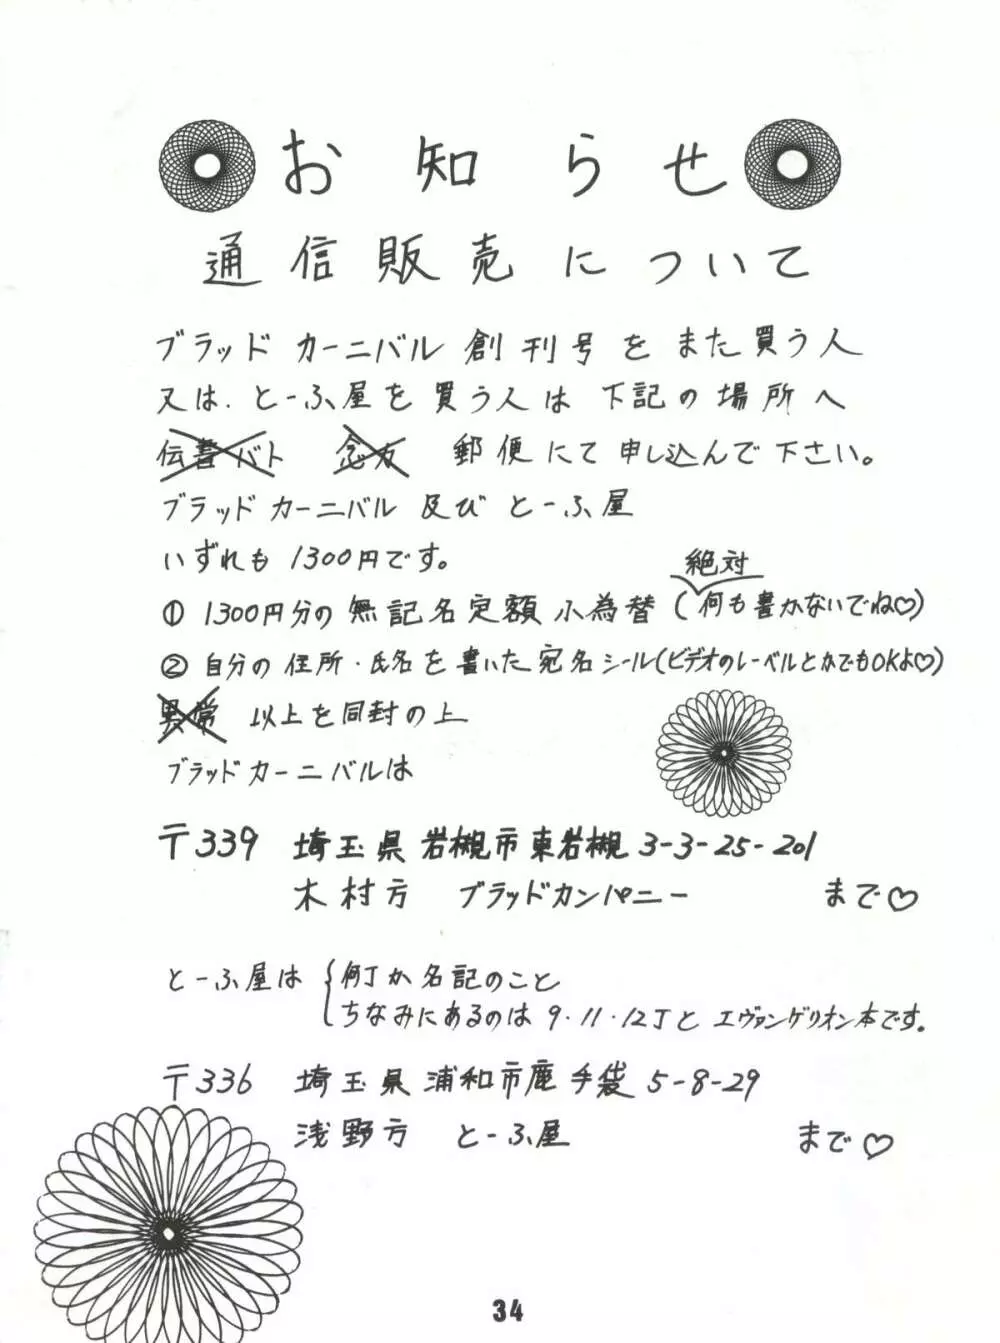 お知らせ
通信販売について
ブラッドカーニバル創刊号をまた買う人
又は、とーふ屋を買う人は下記の場所へ
伝書バト 念力 郵便にて申し込んで下さい。
ブラッドカーニバル及びとーふ屋
いずれも1300円です。
絶対
① 1300円分の無記名定額小為替(何も書かないでね♡)
② 自分の住所・氏名を書いた宛名シール(ビデオのレーベルとかでもOKよ♡)
異常 以上を同封の上
ブラッドカーニバルは
〒339 埼玉県岩槻市東岩槻3-3-25-201
木村方 ブラッドカンパニー まで♡
とーふ屋は {何丁か名記のこと
ちなみにあるのは9・11・12丁とエヴァンゲリオン本です。
〒336 埼玉県浦和市鹿手袋5-8-29
浅野方 とーふ屋 まで♡
34